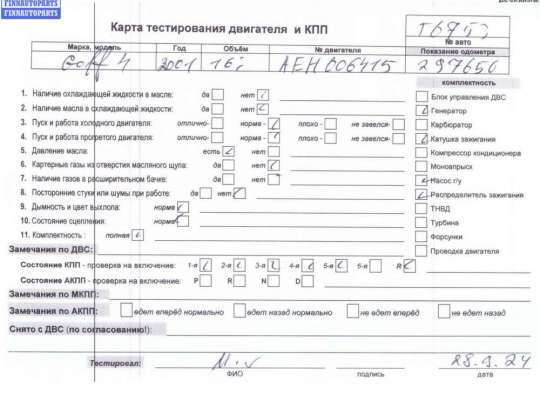 FINNAUTOPARTS
FINNAUTOPARTS
Карта тестирования двигателя и КПП
№ авто
Марка, модель Год Объём № двигателя Показание одометра
Golf 4 2001 16i AEH006415 297650
комплектность
1. Наличие охлаждающей жидкости в масле: да нет
Блок управления ДВС
2. Наличие масла в охлаждающей жидкости: да нет
Генератор
3. Пуск и работа холодного двигателя: отлично- норма - плохо - не завелся-
Карбюратор
4. Пуск и работа прогретого двигателя: отлично- норма - плохо - не завелся-
Катушка зажигания
5. Давление масла: есть нет
Компрессор кондиционера
6. Картерные газы из отверстия масляного щупа: да нет
Моновпрыск
7. Наличие газов в расширительном бачке: да нет
Насос г/у
8. Посторонние стуки или шумы при работе: да нет
Распределитель зажигания
9. Дымность и цвет выхлопа: норма
ТНВД
10. Состояние сцепления: норма
Турбина
11. Комплектность : полная
Форсунки
Замечания по ДВС:
Проводка двигателя
Состояние КПП - проверка на включение: 1-я 2-я 3-я 4-я 5-я 6-я R
Состояние АКПП - проверка на включение: P R N D
Замечания по МКПП:
Замечания по АКПП: едет вперёд нормально едет назад нормально не едет вперёд не едет назад
Снято с ДВС (по согласованию!):
Тестировал: 28.9.24
ФИО подпись дата